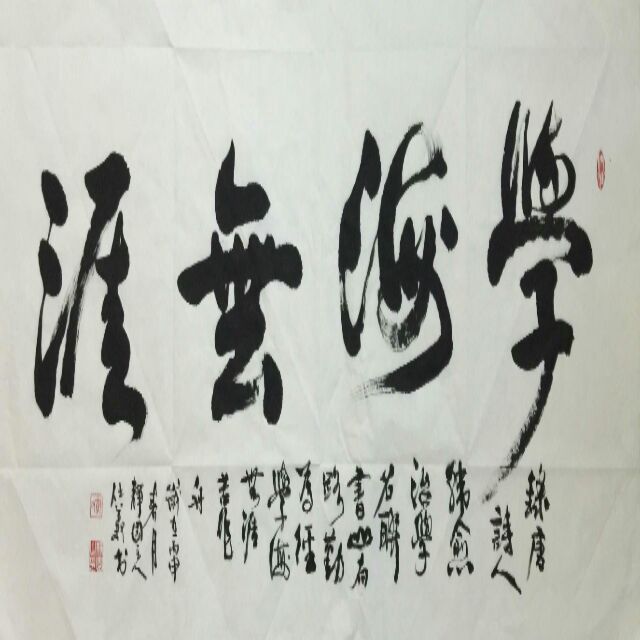 學海無涯
錄唐
詩人
韓愈
治學
名聯
書山有
路勤
為徑
學海
無涯
苦作
舟